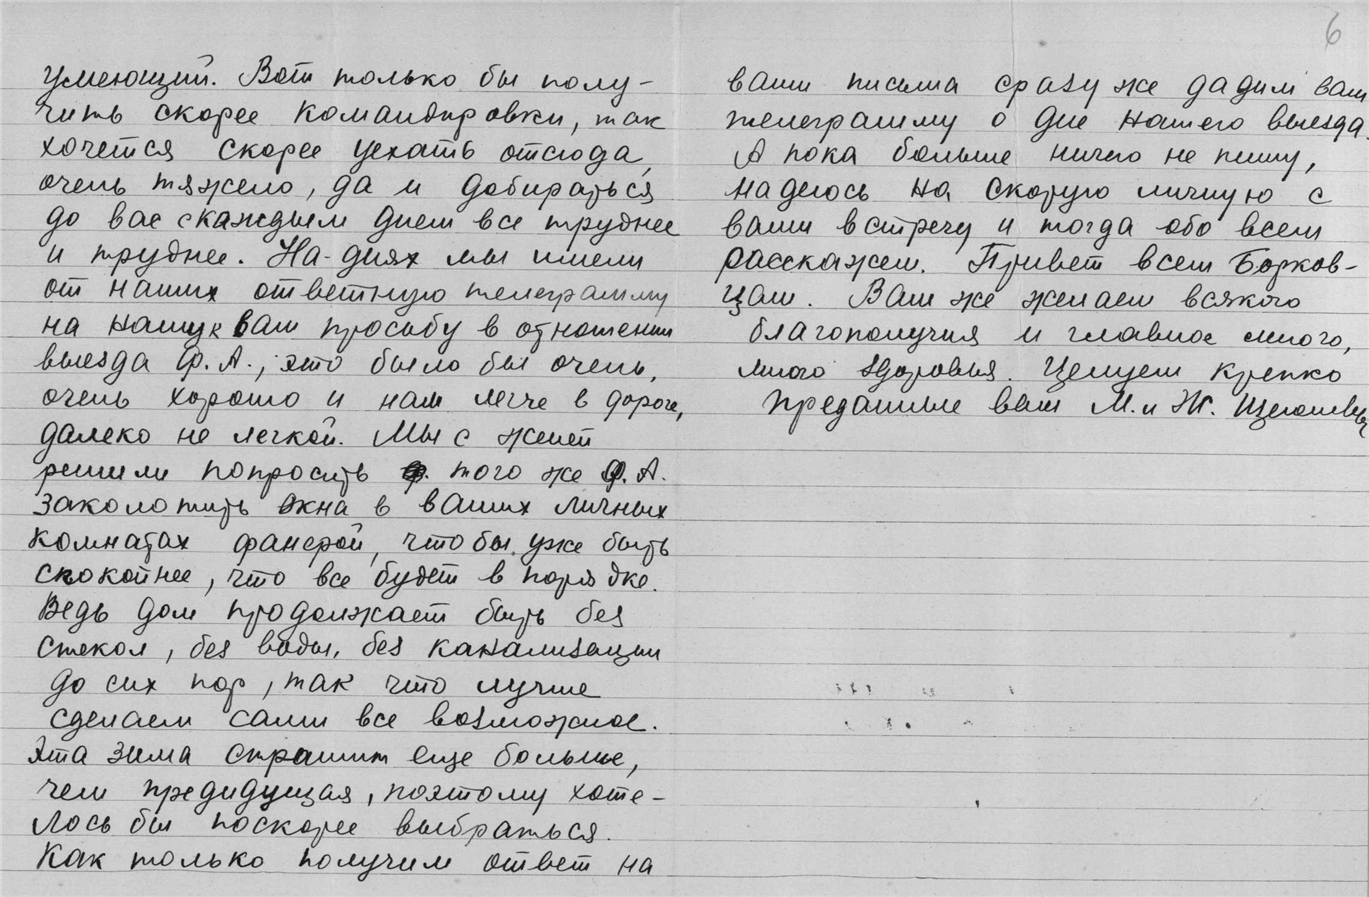 умеющий. Вот только бы полу-
чить скорее командировки, так
хочется скорее уехать отсюда,
очень тяжело, да и добираться
до вас с каждым днем все труднее
и труднее. На-днях мы имели
от наших ответную телеграмму
на нашу к вам просьбу в отношении
выезда Ф.А., это было бы очень,
очень хорошо и нам легче в дороге,
далеко не легкой. Мы с женей
решили попросить того же Ф.А.
заколотить окна в ваших личных
комнатах фанерой, чтобы уже быть
спокойнее, что все будет в порядке.
Ведь дом продолжает быть без
стекол, без воды, без канализации
до сих пор, так что лучше
сделаем сами все возможное.
Эта зима страшит еще больше,
чем предидущая, поэтому хоте-
лось бы поскорее выбраться.
Как только получим ответ на
6
ваши письма сразу же дадим вам
телеграмму о дне нашего выезда.
А пока больше ничего не пишу,
надеюсь на скорую личную с
вами встречу и тогда обо всем
расскажем. Привет всем Борков-
цам. Вам же желаем всякого
благополучия и главное много,
много здоровья. Целуем крепко
преданные вам М. и Ж.